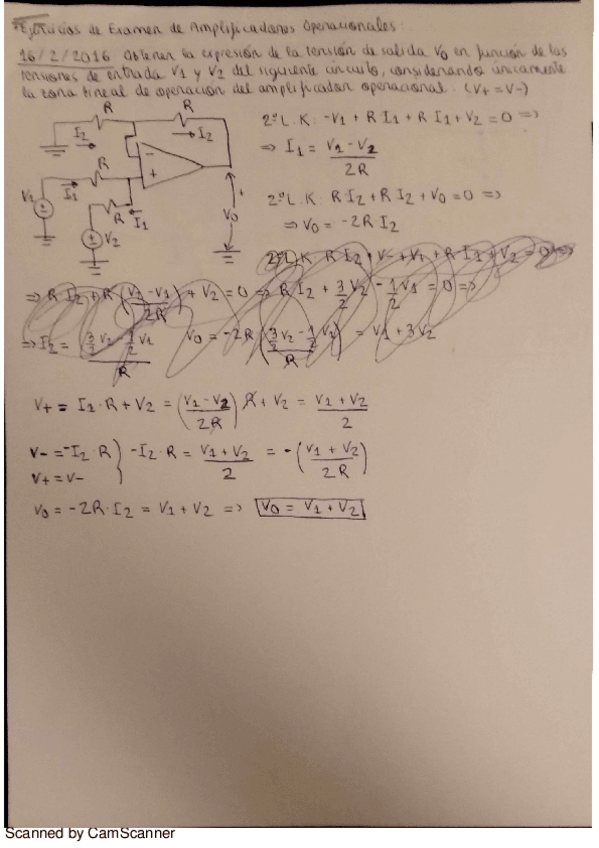 Ejercicios de Examen de Amplificadores Operacionales:
16/2/2016 Obtener la expresión de la tensión de salida V0 en función de las
tensiones de entrada V1 y V2 del siguiente circuito, considerando únicamente
la zona lineal de operación del amplificador operacional. (V+ = V-)
R
R
I2
I2
R
V1
I1
R
I1
V2
-
+
+
V0
-
2ª L.K: -V1 + R I1 + R I1 + V2 = 0 =>
=> I1 = (V1 - V2)/2R
2ª L.K: R I2 + R I2 + V0 = 0 =>
=> V0 = -2R I2
=> R I2 + R ((V2 - V1)/2R) + V2 = 0 => R I2 + 3/2 V2 - 1/2 V1 = 0 =>
V0 = -2R ( ) = V1 + 3V2
V+ = I1·R + V2 = ((V1 - V2)/2R) R + V2 = (V1 + V2)/2
V- = -I2·R } -I2·R = (V1 + V2)/2 = -((V1 + V2)/2R)
V+ = V-
V0 = -2R·I2 = V1 + V2 => V0 = V1 + V2
Scanned by CamScanner